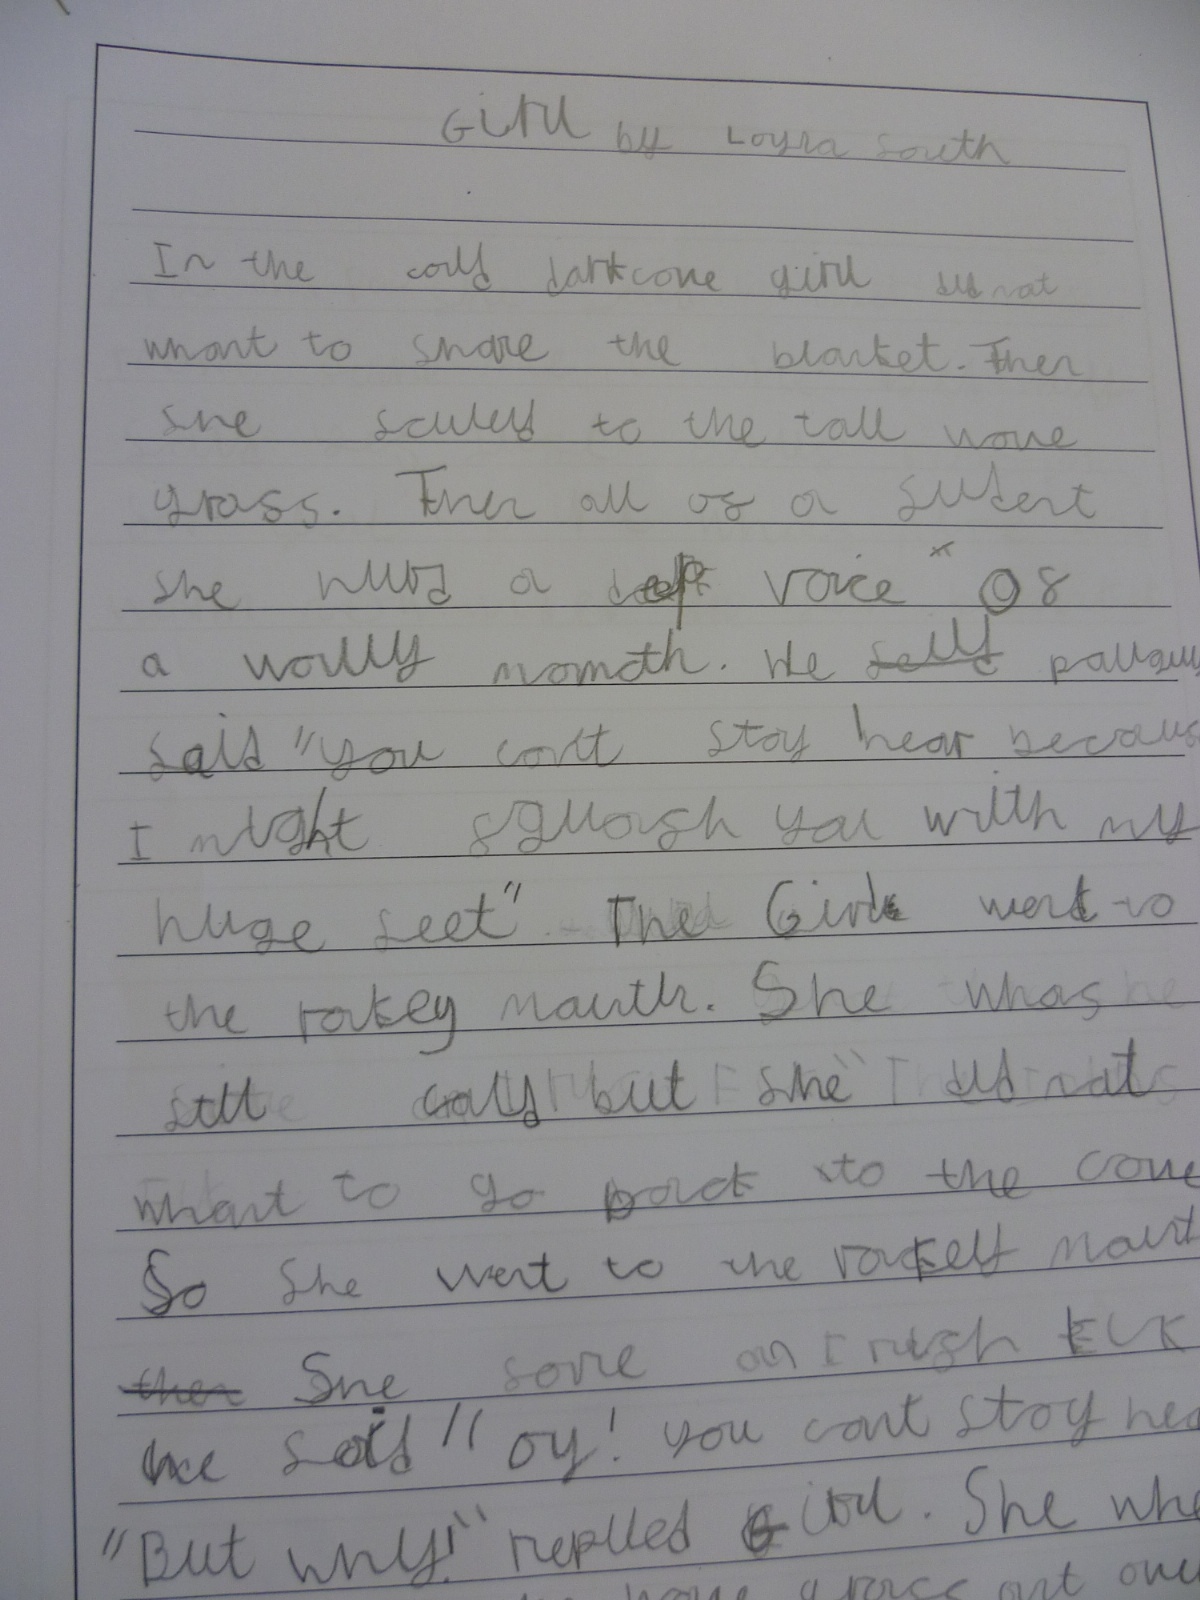 Girll by Loyra South
In the could darkcave girll did not
whant to share the blanket. Then
she to the tall wave
grass. Then all of a sudent
she a deep voice " Of
a wolly momoth. He
said "you cant stay hear becaus
I might sqwosh you with my
huge feet" The Girl went to
the rokey mauth. She whas
still but she did not
whant to go back to the cave
So she went to the mount
then She on I rugh ELK
he said "oy! you cant stay hea
"But why!" replied Girl. She whe
grass out